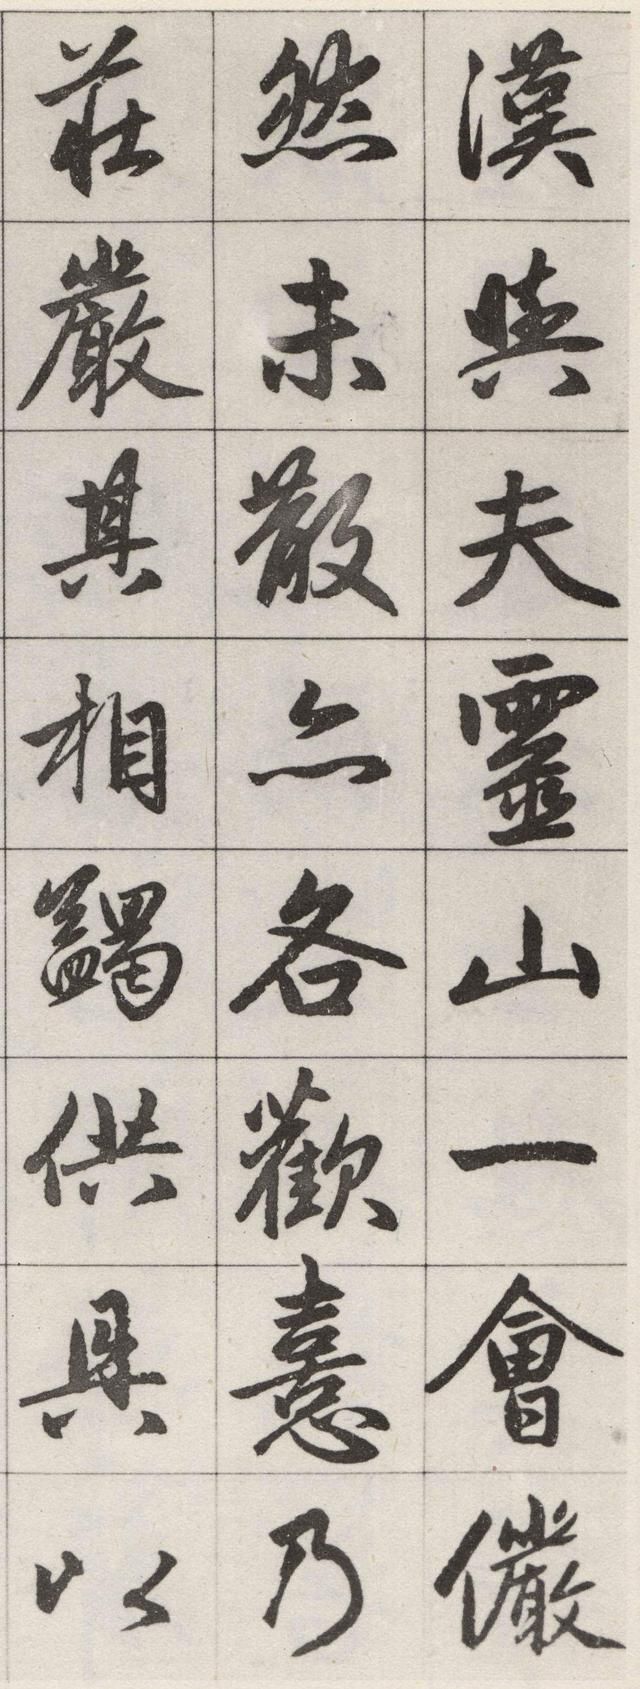 漢與夫靈山一會儼
然未散亦各歡憙乃
莊嚴其相蠲供具以